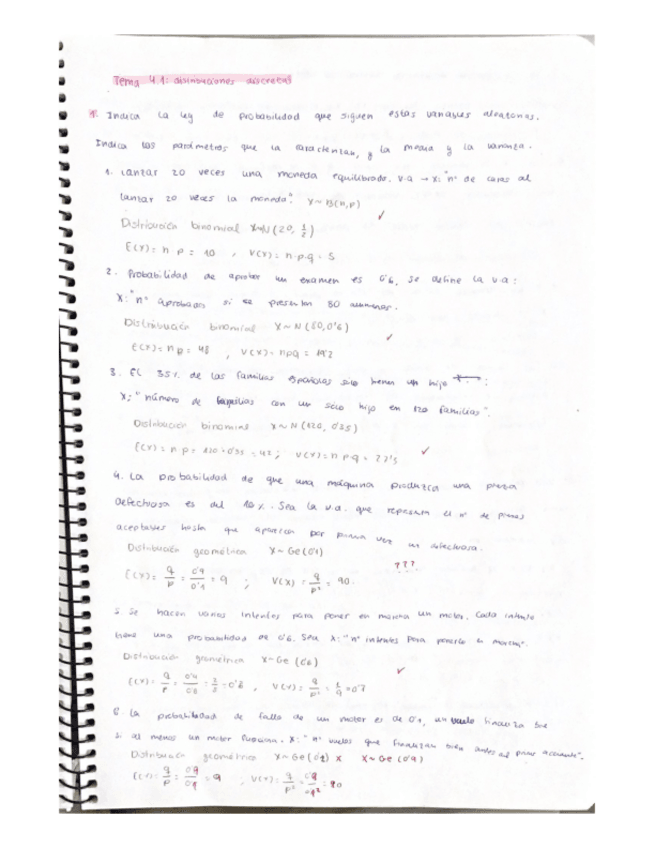 Tema 4.1: distribuciones discretas
1. Indica la ley de probabilidad que siguen estas variables aleatorias.
Indica los parámetros que la caracterizan, y la media y la varianza.
1. Lanzar 20 veces una moneda equilibrada. v.a → X: "nº de caras al
lanzar 20 veces la moneda". X~B(n,p)
Distribución binomial X~N(20, 1/2)
E(X)= n·p = 10 , V(X)= n·p·q = 5
2. Probabilidad de aprobar un examen es 0'6, se define la v.a:
X: "nº aprobados si se presentan 80 alumnos.
Distribución binomial X~N(80,0'6)
E(X)= np = 48 , V(X)= npq = 19'2
3. El 35% de las familias españolas solo tienen un hijo :
X: "número de familias con un sólo hijo en 120 familias".
Distribución binomial X~N(120, 0'35)
E(X)= n p = 120·0'35 = 42 ; V(X)= n·p·q = 27'3
4. La probabilidad de que una máquina produzca una pieza
defectuosa es del 10%. Sea la v.a. que representa el nº de piezas
aceptables hasta que aparezca por primera vez un defectuosa.
Distribución geométrica X~Ge(0'1)
???
E(X)= q/p = 0'9/0'1 = 9 ; V(X)= q/p² = 90.
5. Se hacen varios intentos para poner en marcha un motor. Cada intento
tiene una probabilidad de 0'6. Sea X: "nº intentos para ponerlo en marcha".
Distribución geométrica X~Ge(0'6)
E(X)= q/p = 0'4/0'6 = 2/3 = 0'6 , V(X)= q/p² =
6. La probabilidad de fallo de un motor es de 0'1, un vuelo finaliza
si al menos un motor funciona. X: "nº vuelos que finalizan bien antes del primer accidente".
Distribución geométrica X~Ge(0'1) x X~Ge(0'9)
E(X)= q/p = 0'9/0'1 = 9 , V(X)= q/p² = 0'9/0'1² = 90